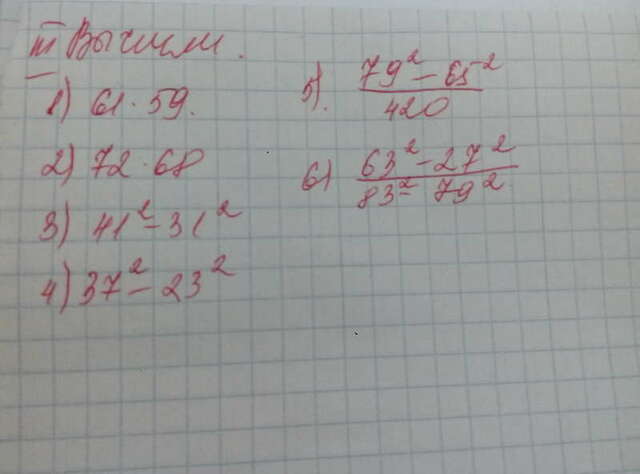 III Вычисли.
1) 61·59.
2) 72·68
3) 41²-31²
4) 37²-23²
5). 79²-65²
420
6) 63²-27²
83²-79²